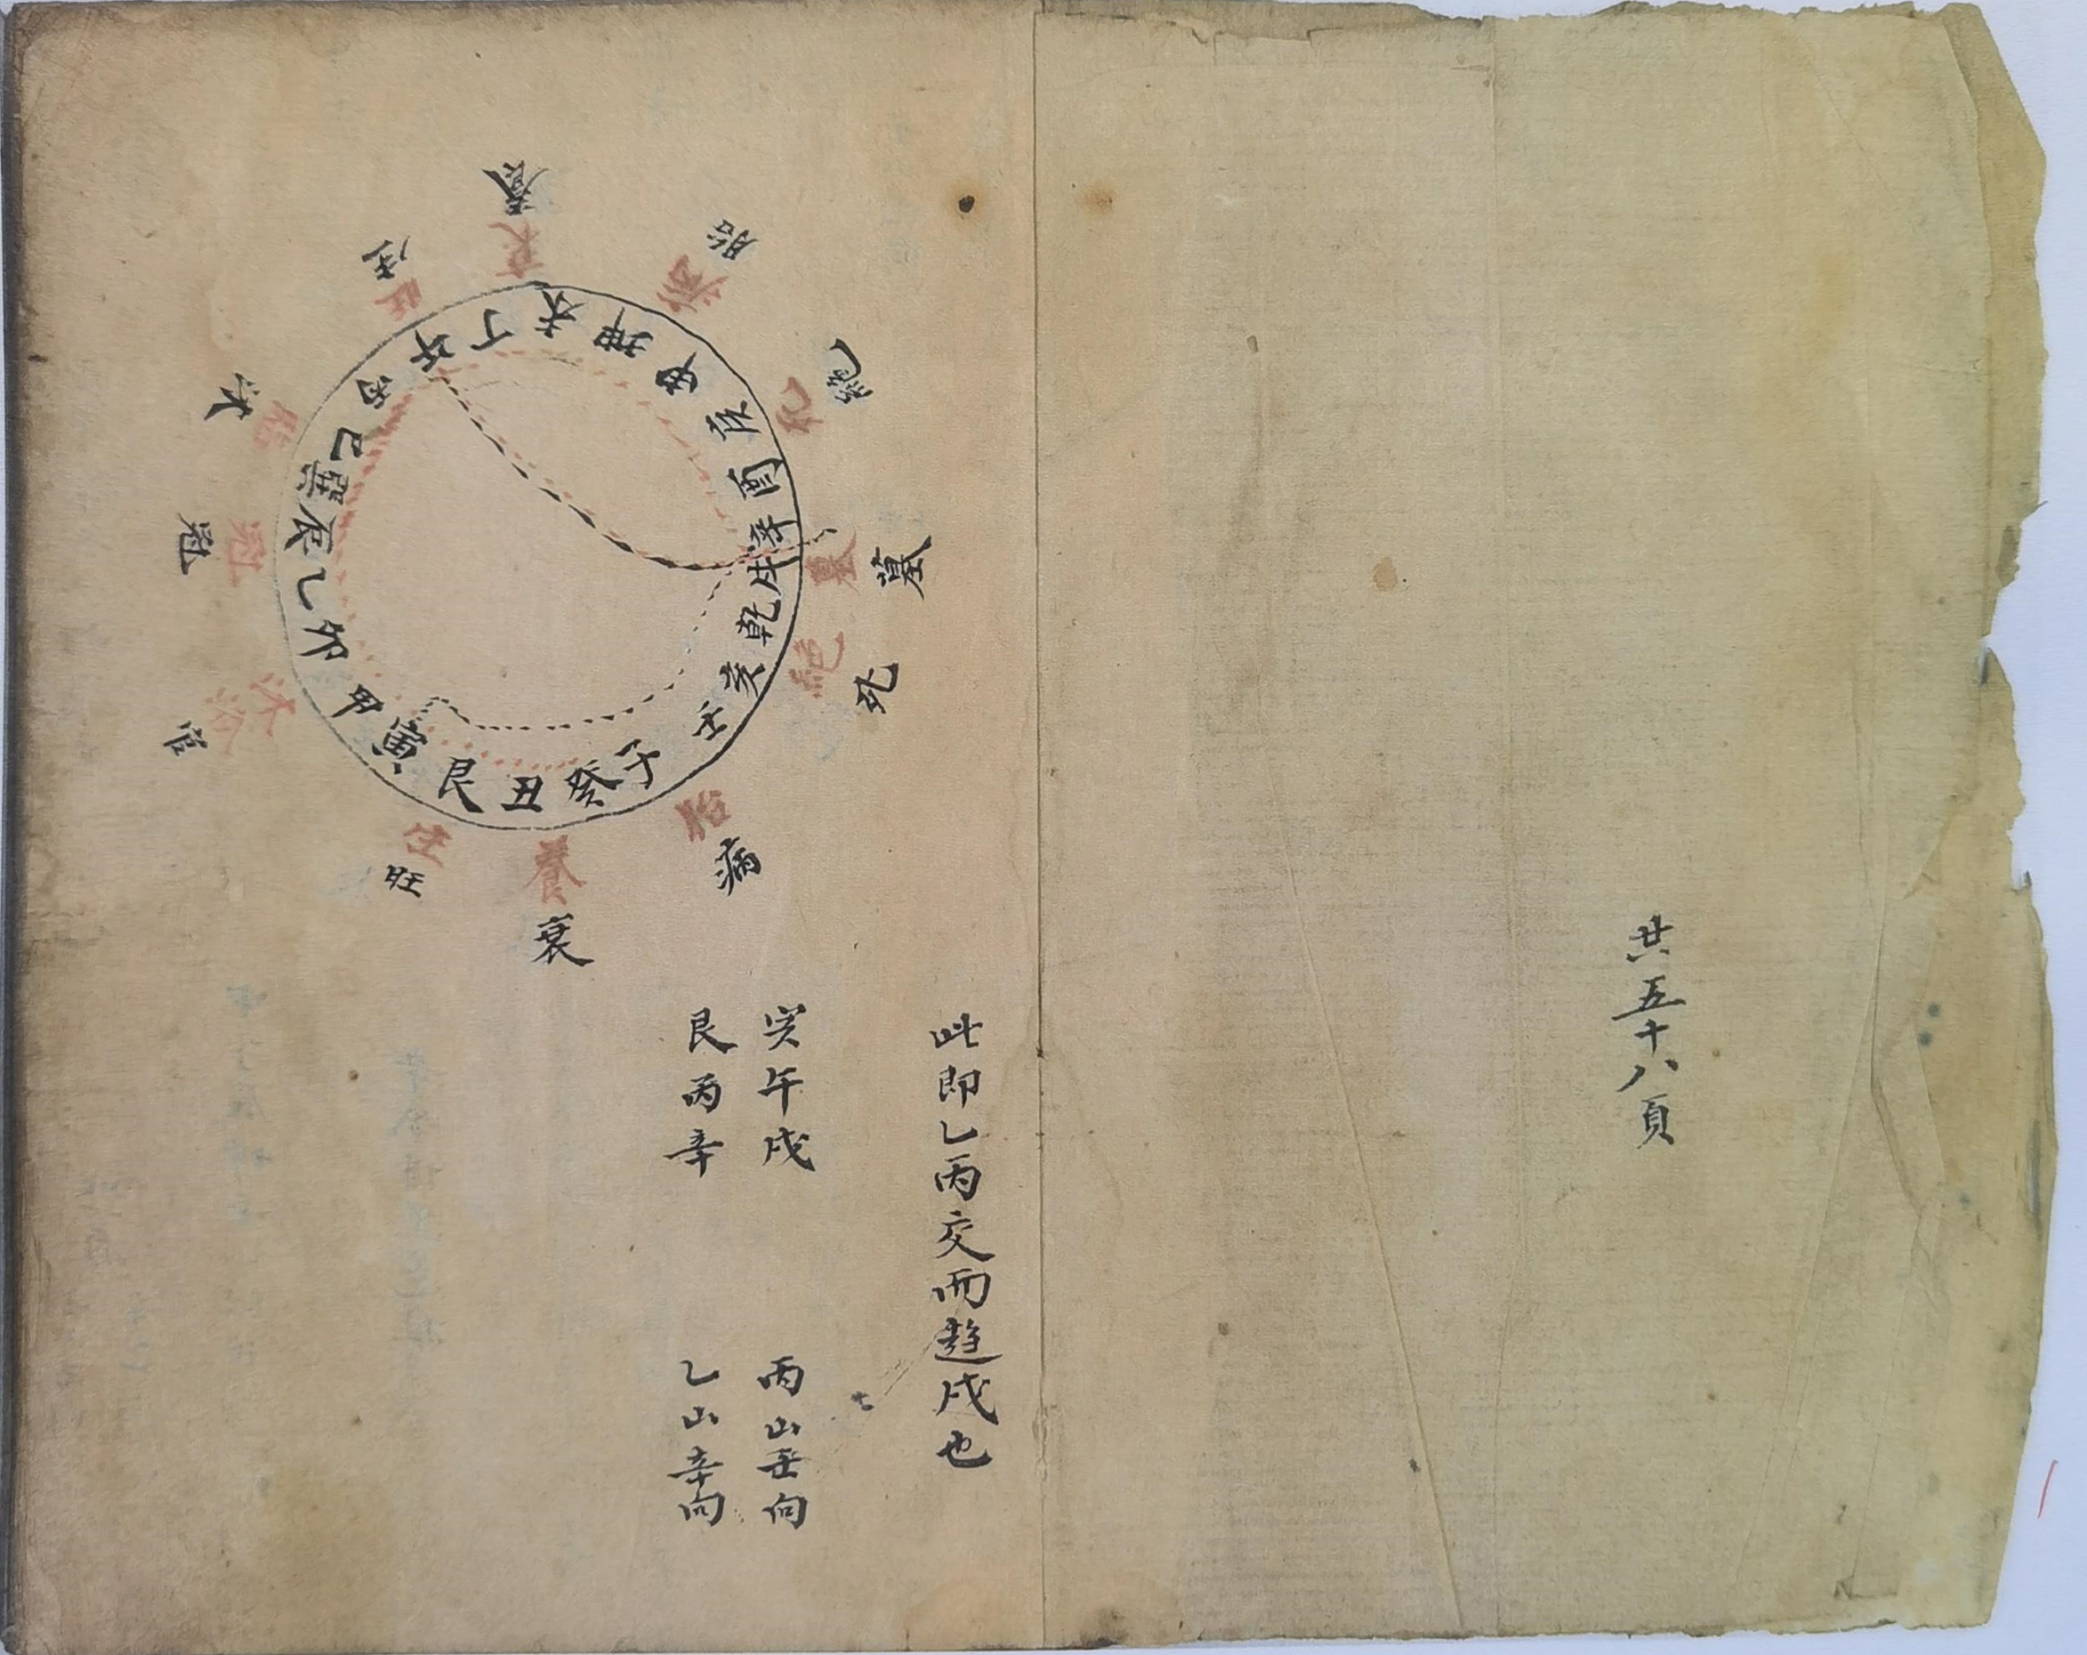 共五十八頁
此即乙丙交而趋戌也
午戌
丙山壬向
艮丙辛
乙山辛向
午丁未坤申庚酉辛戌乾亥壬子癸丑艮寅甲卯乙辰巽巳丙
養
胎
絶
墓
死
病
衰
旺
官
冠
沐
生
衰
病
墓
絕
養
生
沐浴
冠
旺